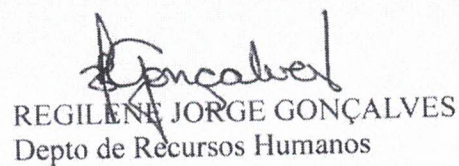 RGonçalves
REGILENE JORGE GONÇALVES
Depto de Recursos Humanos